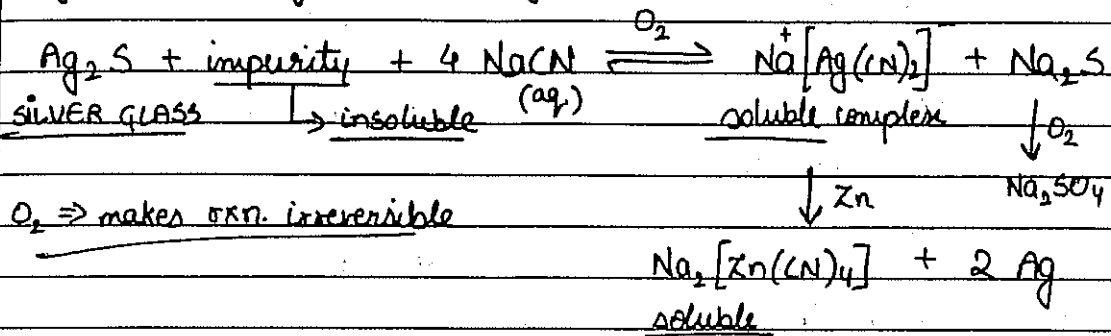 O₂
Ag₂S + impurity + 4 NaCN ⇌ Na⁺[Ag(CN)₂]⁻ + Na₂S
SILVER GLASS ↳ insoluble (aq.) soluble complex ↓ O₂
O₂ ⇒ makes rxn. irreversible ↓ Zn Na₂SO₄
Na₂[Zn(CN)₄] + 2 Ag
soluble